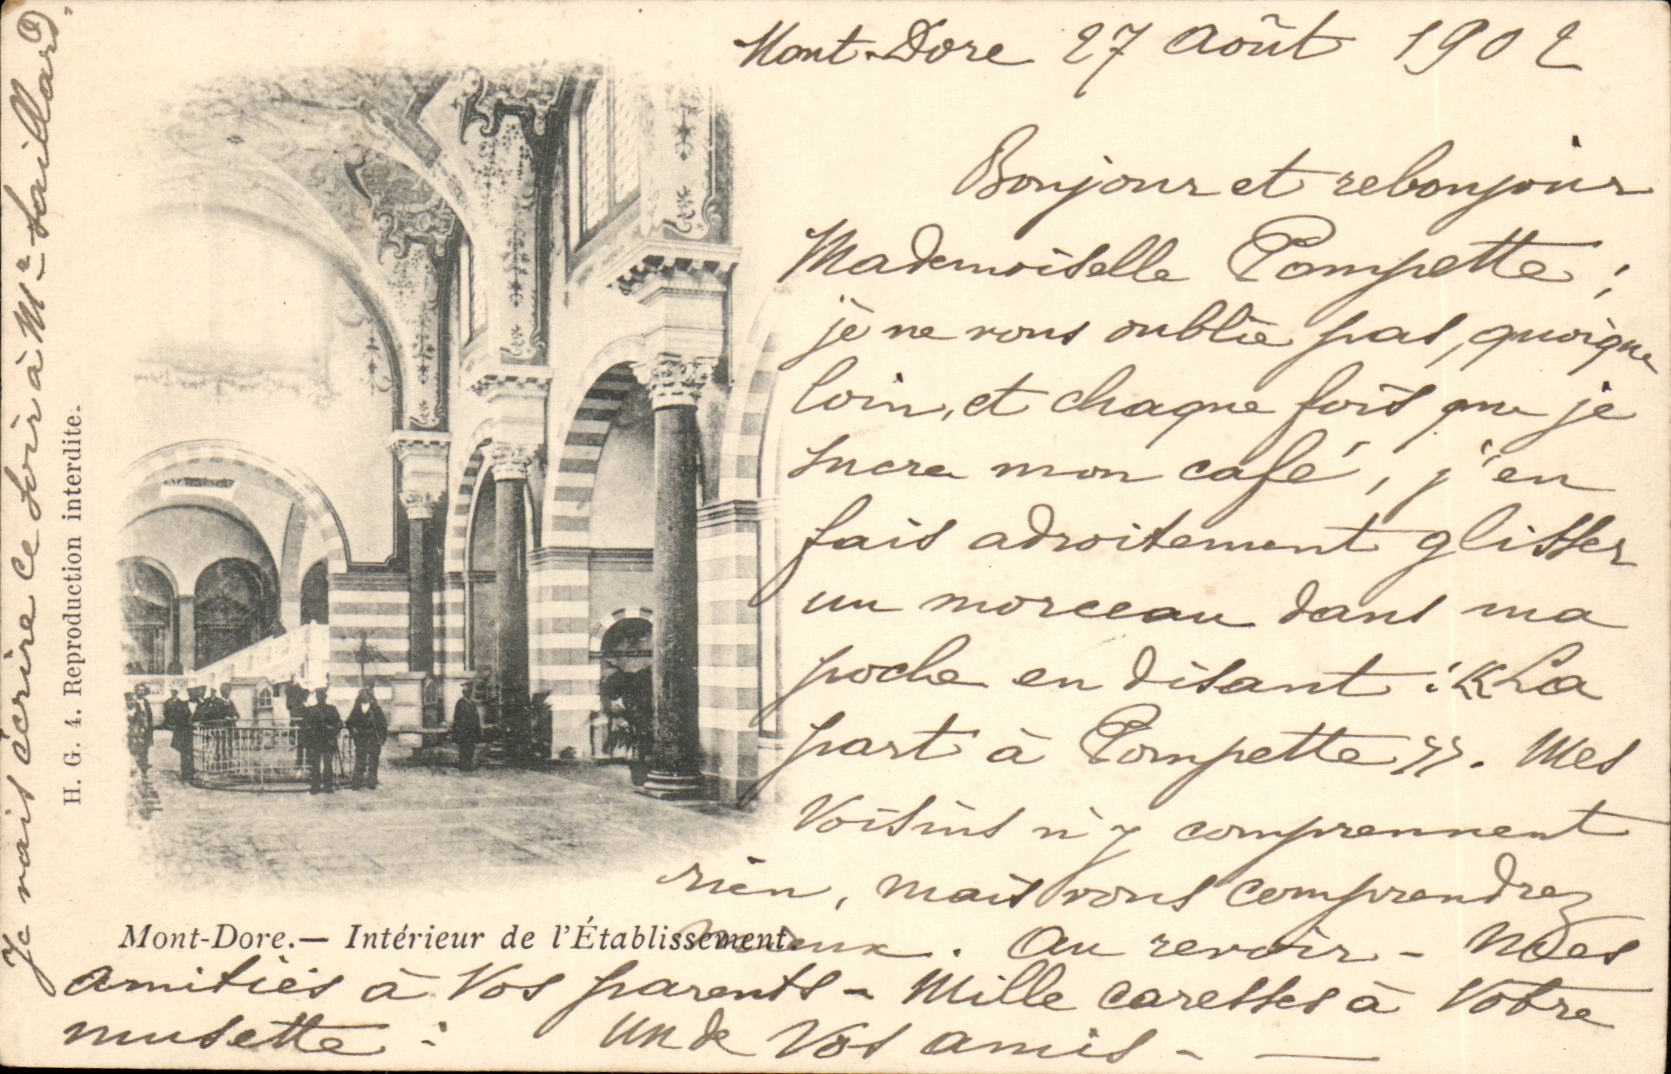 Mont-Dore 27 Août 1902
Bonjour et rebonjour
Mademoiselle Pompette ;
je ne vous oublie pas, quoique
loin, et chaque fois que je
sucre mon café, j'en
fais adroitement glisser
un morceau dans ma
poche en disant : « La
part à Pompette ». Mes
voisins n'y comprennent
rien, mais vous comprendrez
mieux. Au revoir - Mes
amitiés à vos parents - Mille caresses à votre
musette : Un de vos amis - —
Mont-Dore.— Intérieur de l'Établissement.
H. G. 4. Reproduction interdite.
Je vais écrire ce soir à Mr